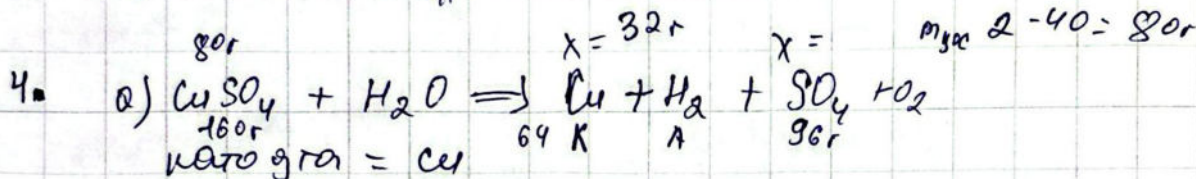 80г X = 32г X = 2 - 40 = 80г
4. a) CuSO4 + H2O => Cu + H2 + SO4 + O2
160г 64 К А 96г
= Cu